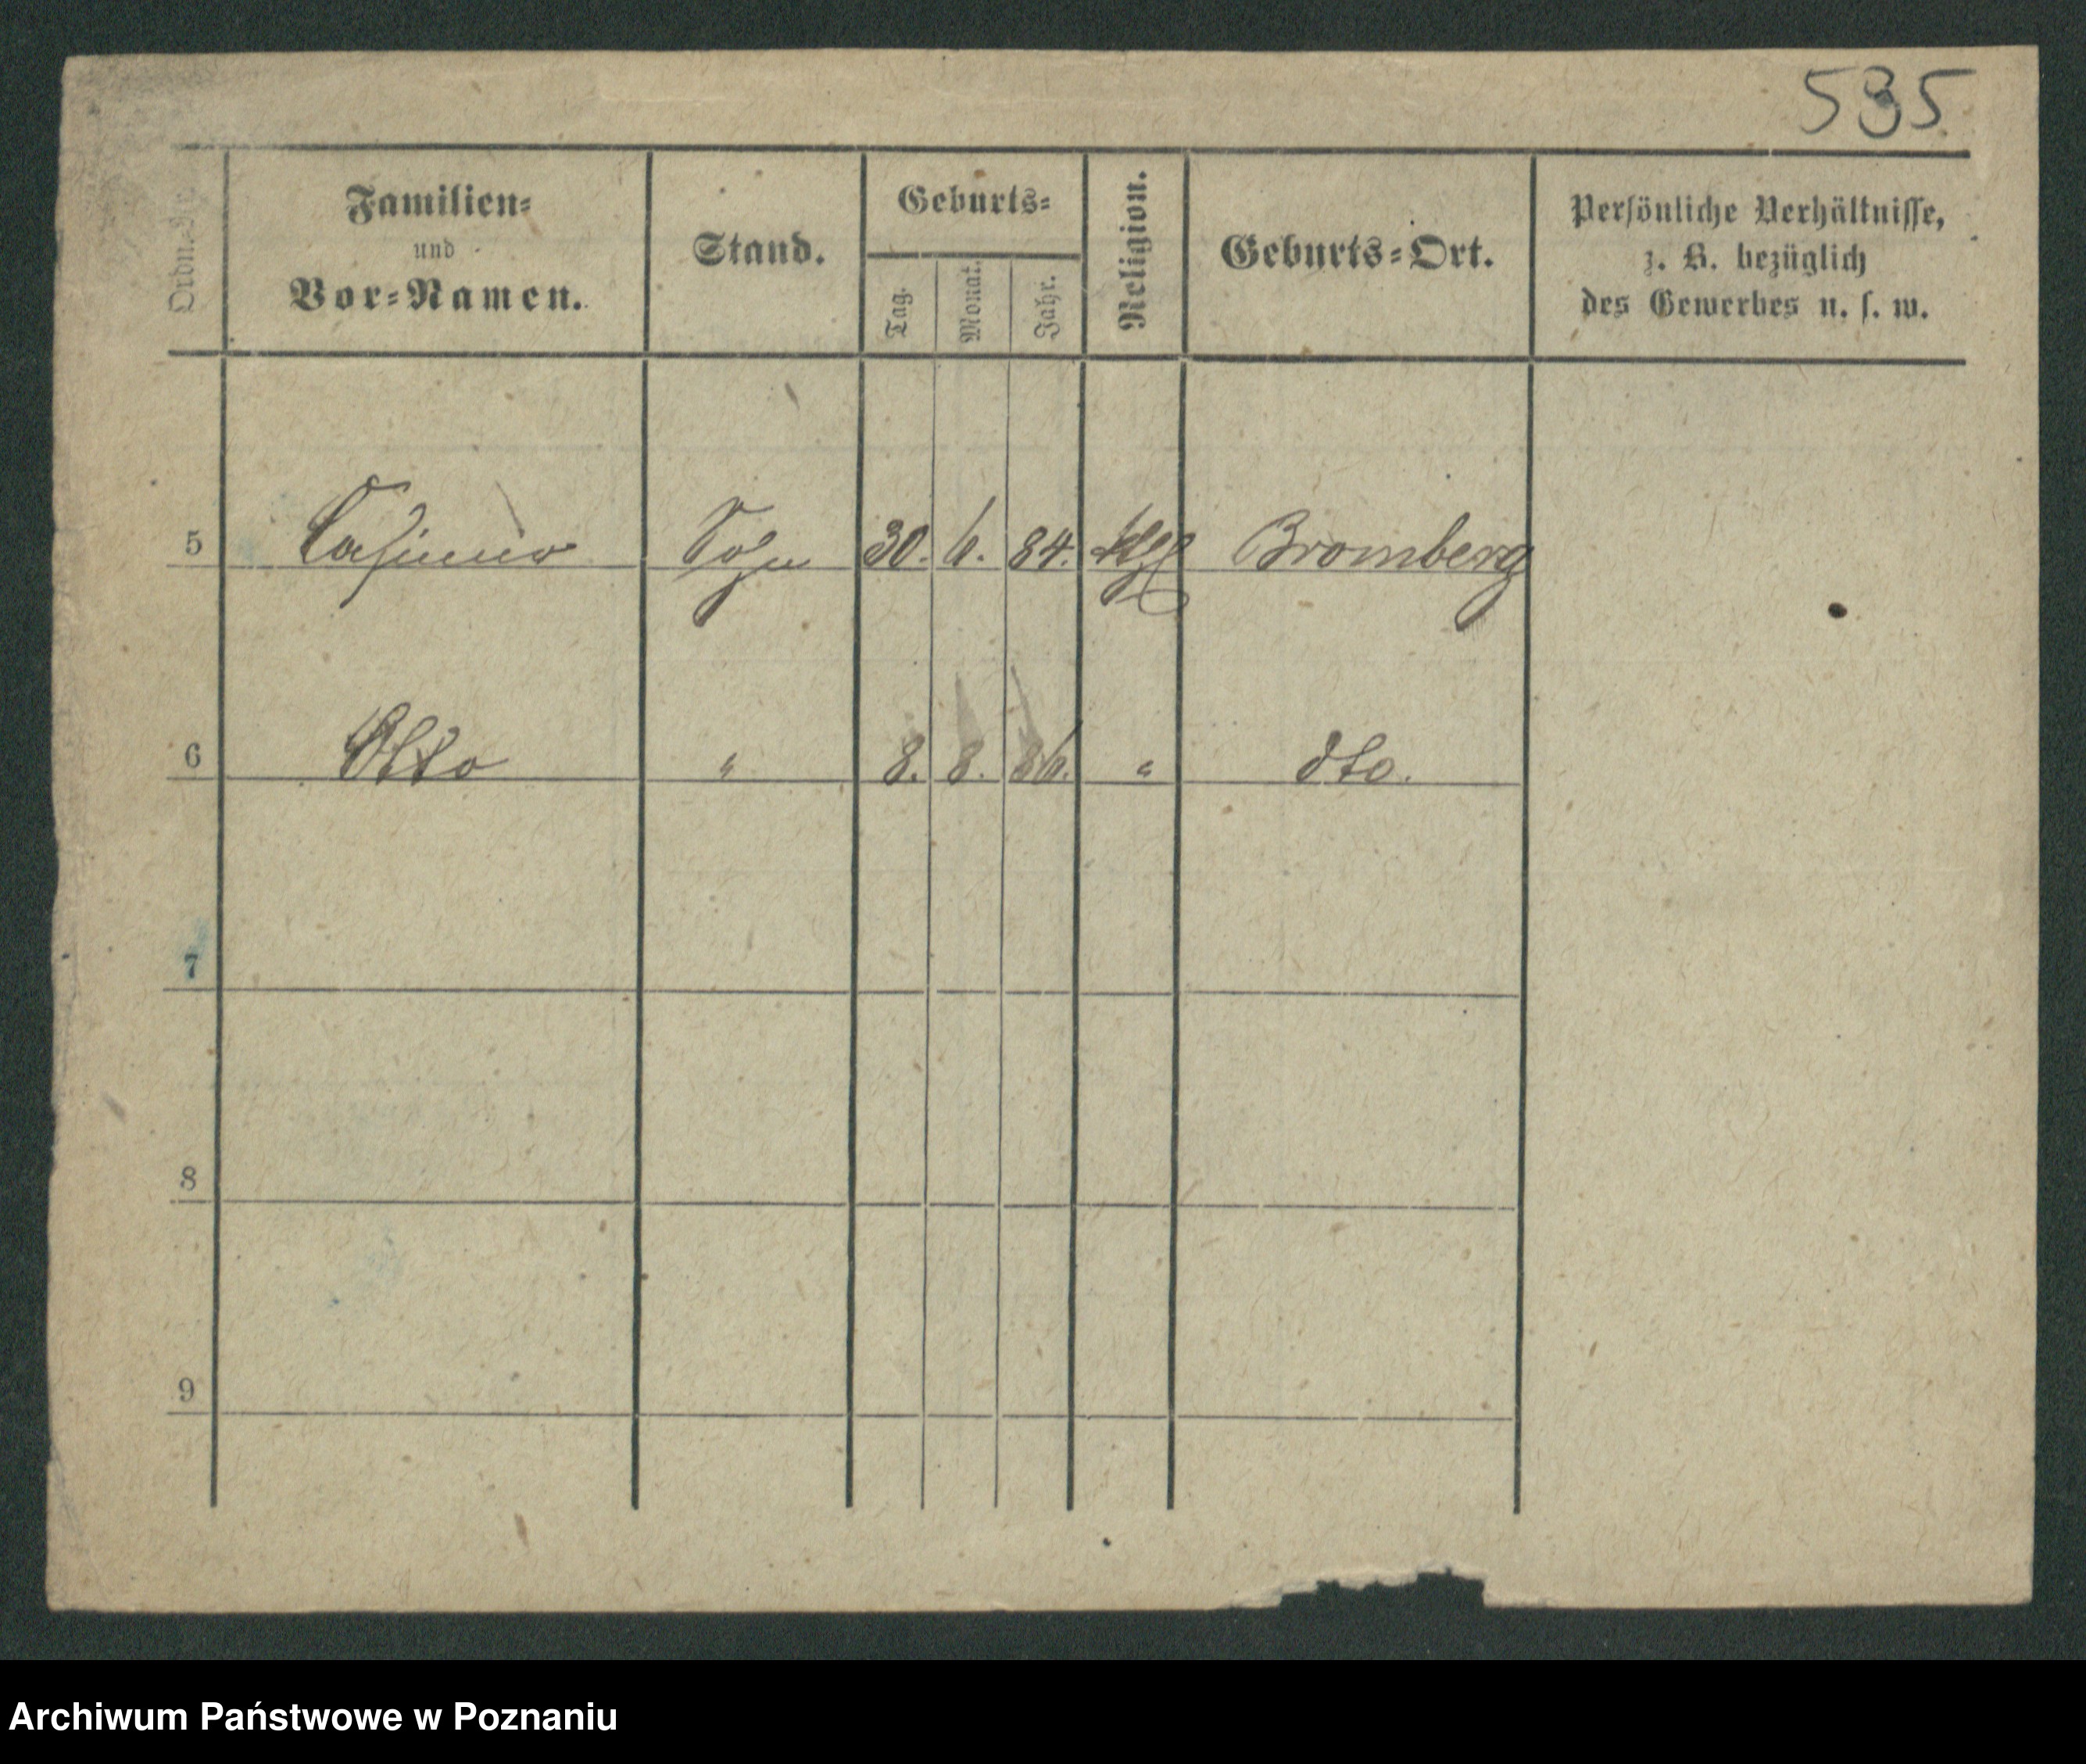 535
Ordn.-Nr.
Familien-
und
Vor-Namen.
Stand.
Geburts-
Tag.
Monat.
Jahr.
Religion.
Geburts-Ort.
Persönliche Verhältnisse,
z. B. bezüglich
des Gewerbes u. s. w.
5 Casimir Sohn 30. 6. 84. kth Bromberg
6 Otto " 8. 8. 86. " dto.
7
8
9
Archiwum Państwowe w Poznaniu